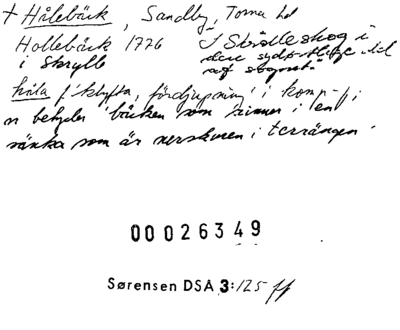 † Hålebäck, Sandby, Torna hd
Hollebäck 1776 "I Skrölleskog i
i Skrylle den sydostlige del
af sognet."
håla f. 'klyfta, fördjupning' i komp. i
n betyder 'bäcken som rinner i en
sänka som är nerskuren i terrängen'
00026349
Sørensen DSA 3:125 ff